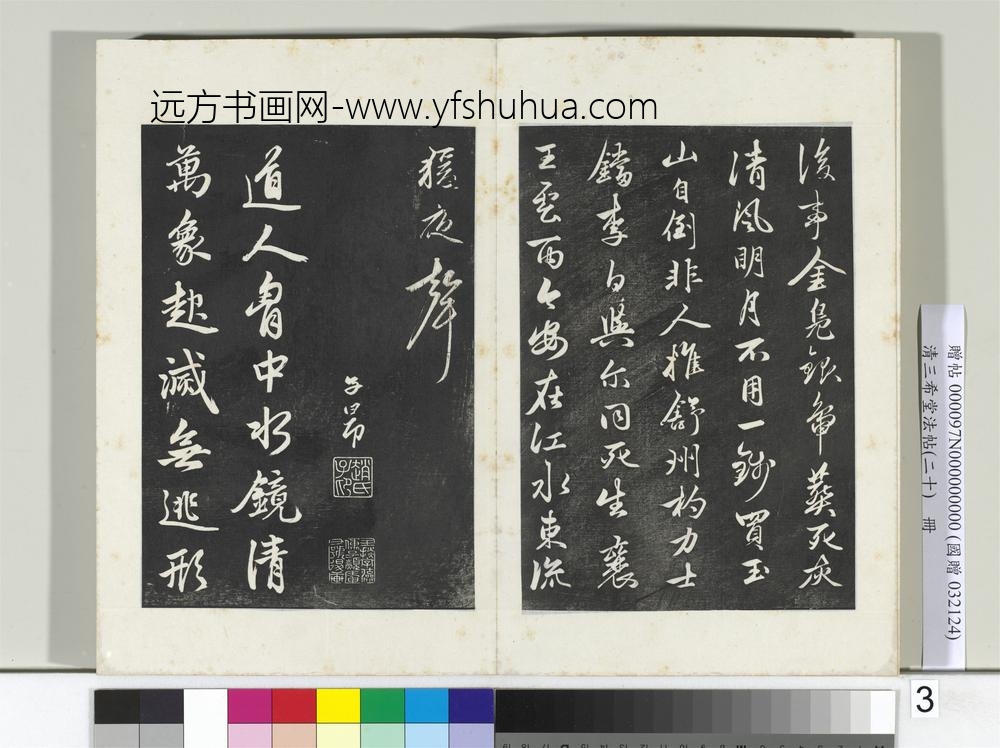 远方书画网-www.yfshuhua.com
後事金鳧銀葬死灰
清風明月不用一錢買玉
山自倒非人推舒州杓力士
鐺李白與爾同死生襄
王雲雨今安在江水東流
猿夜聲
子昂
趙氏子昂
道人胷中水鏡清
萬象起滅無逃形
贈帖 000097N000000000 (國贈 032124)
清三希堂法帖(二十) 冊
3